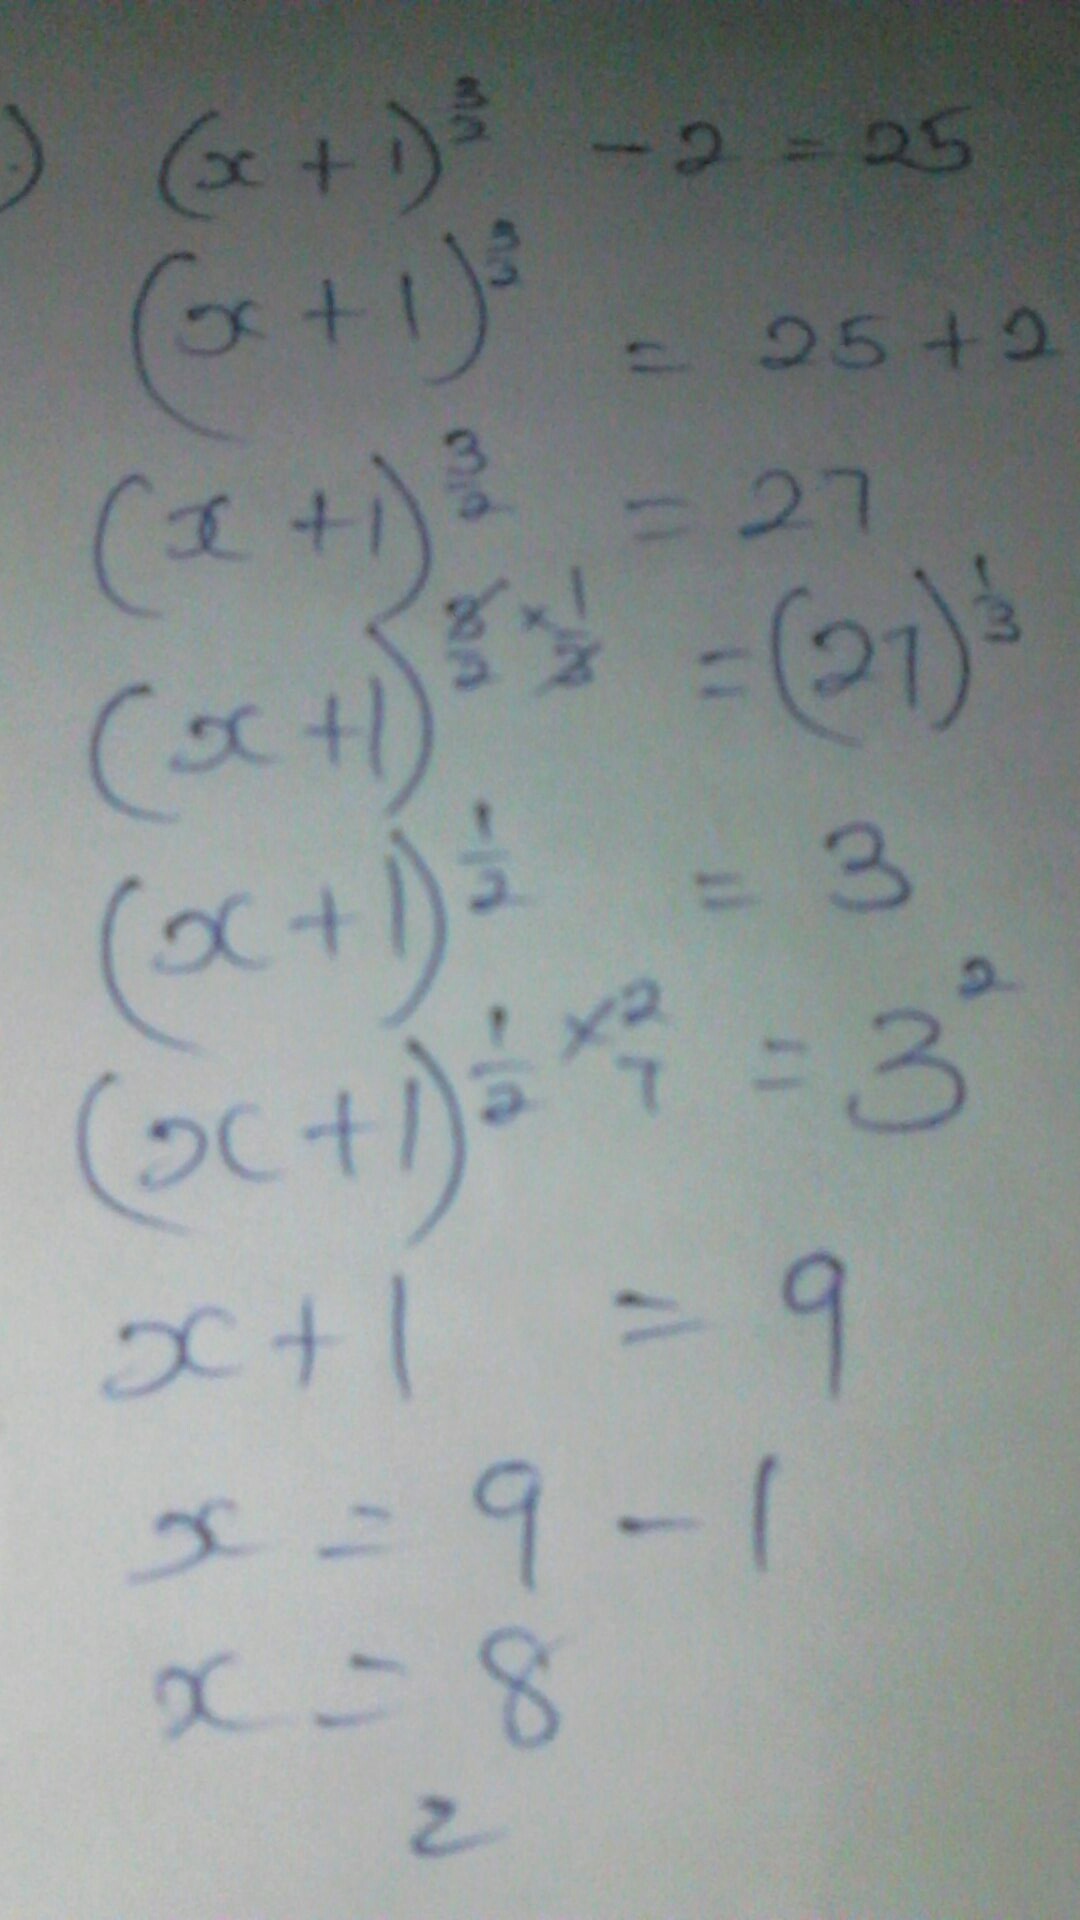 .) (x+1)^(3/2) - 2 = 25
(x+1)^(3/2) = 25+2
(x+1)^(3/2) = 27
(x+1)^(3/2 × 1/3) = (27)^(1/3)
(x+1)^(1/2) = 3
(x+1)^(1/2 × 2/1) = 3^2
x+1 = 9
x = 9 - 1
x = 8
2